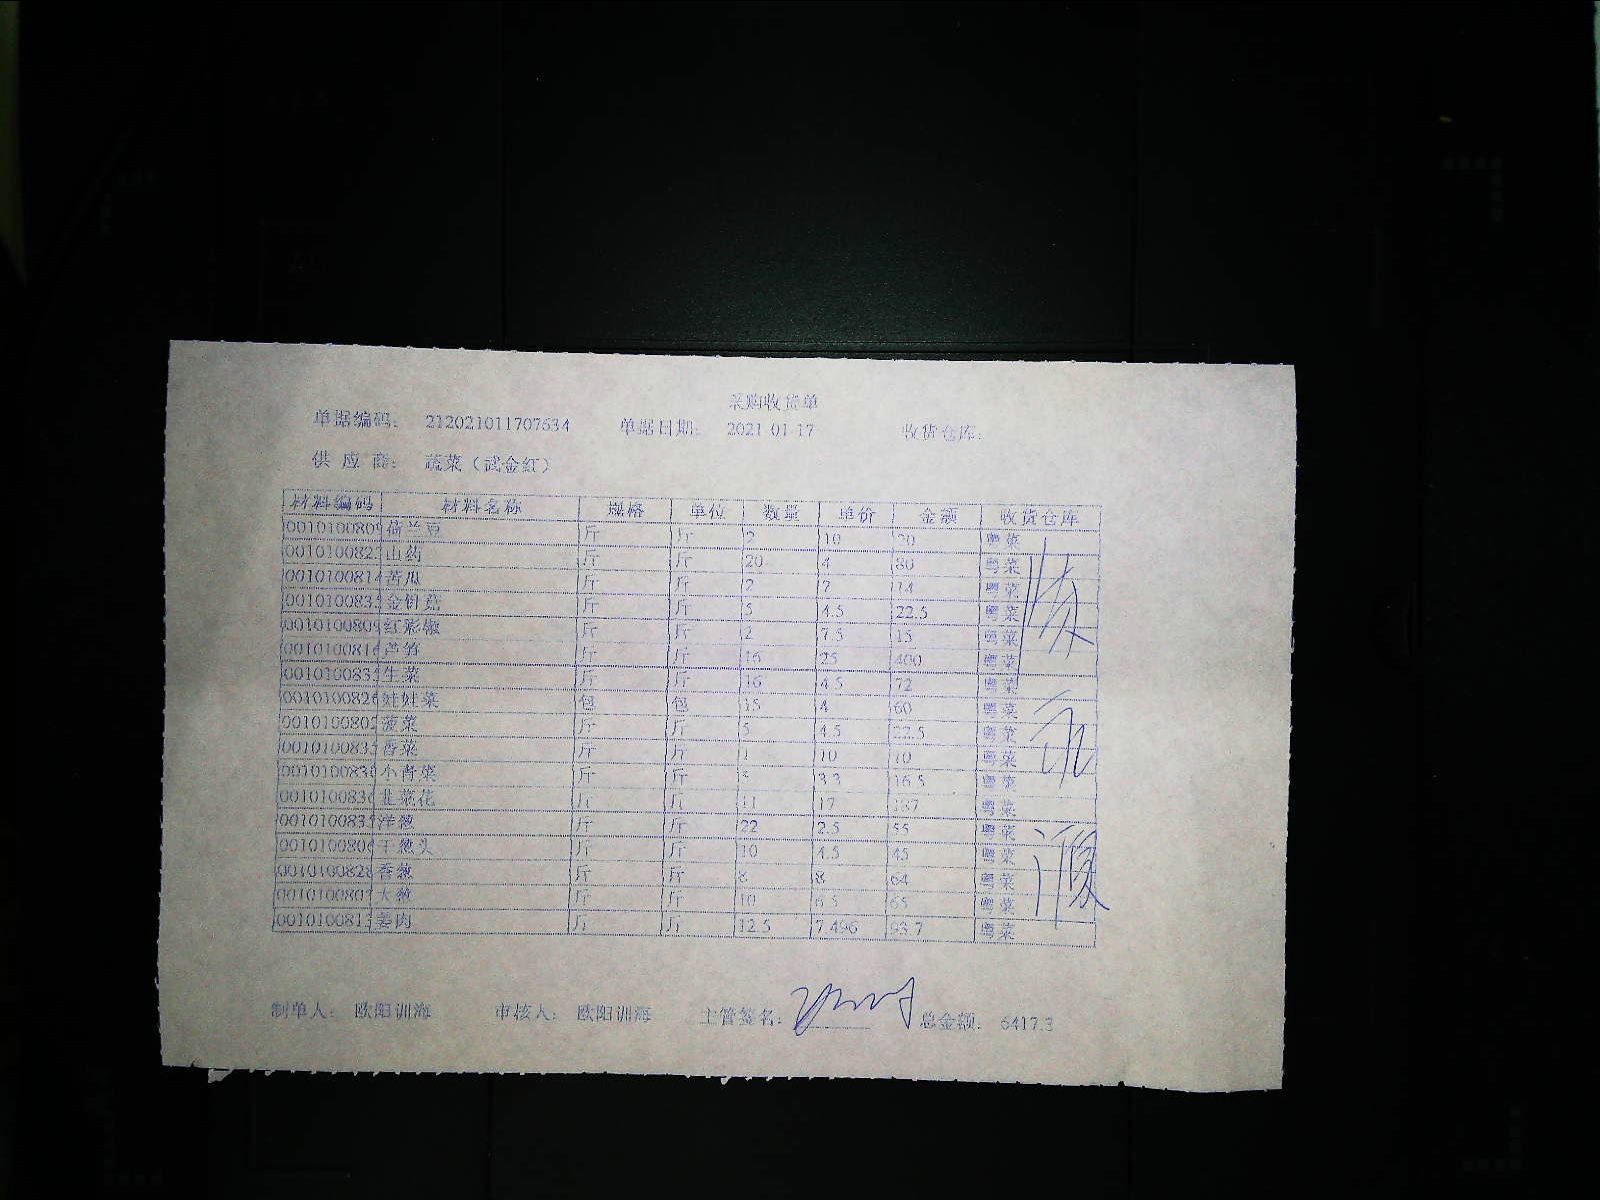 采购收货单
单据编码： 212021011707634 单据日期： 2021 01 17 收货仓库：
供 应 商： 蔬菜（武金红）
材料编码 材料名称 规格 单位 数量 单价 金额 收货仓库
0010100809 荷兰豆 斤 斤 2 10 20 粤菜
001010082 山药 斤 斤 20 4 80 粤菜
0010100814 苦瓜 斤 斤 2 14 粤菜
001010083 金针菇 斤 斤 5 4.5 22.5 粤菜
001010080 红彩椒 斤 斤 2 7.5 15 粤菜
001010081 芦笋 斤 斤 16 25 400 粤菜
001010083 生菜 斤 斤 16 4.5 72 粤菜
001010082 娃娃菜 包 包 15 4 60 粤菜
001010080 菠菜 斤 斤 5 4.5 22.5 粤菜
001010083 香菜 斤 斤 1 10 10 粤菜
001010083 小青菜 斤 斤 3.3 16.5 粤菜
001010083 韭菜花 斤 斤 11 17 187 粤菜
001010083 洋葱 斤 斤 22 2.5 55 粤菜
001010080 干葱头 斤 斤 10 4.5 45 粤菜
001010082 香葱 斤 斤 8 8 64 粤菜
001010080 大葱 斤 斤 10 6.5 65 粤菜
001010081 姜肉 斤 斤 12.5 7.496 93.7 粤菜
制单人： 欧阳训海 审核人： 欧阳训海 主管签名： 总金额： 6417.3